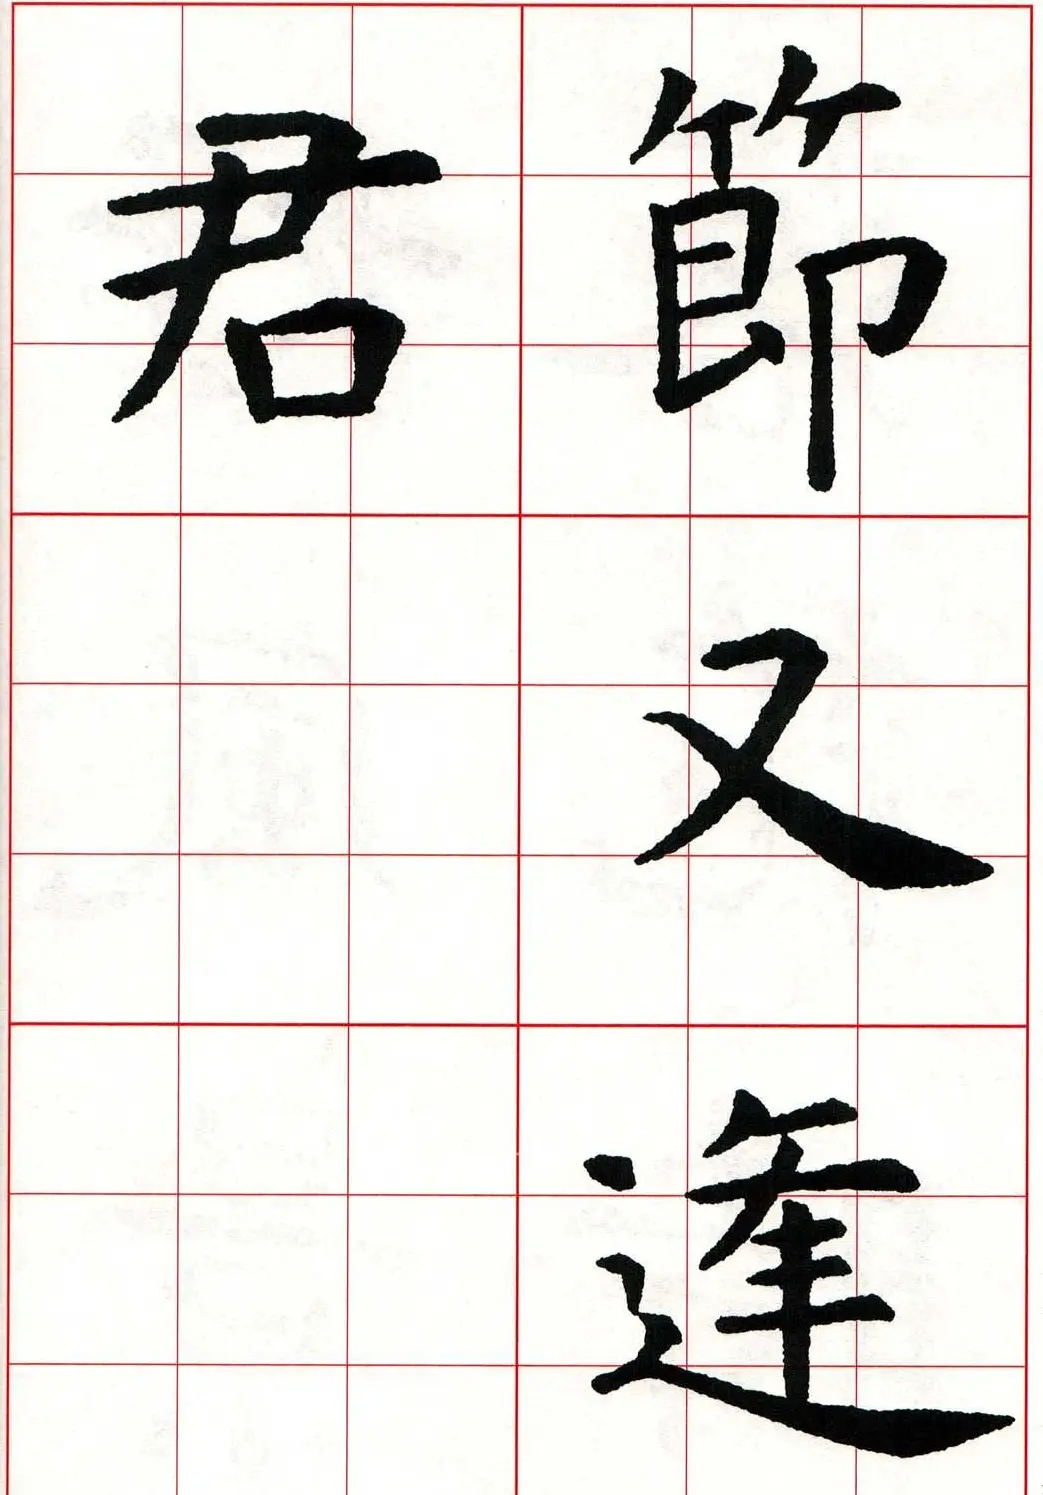 節又逢
君